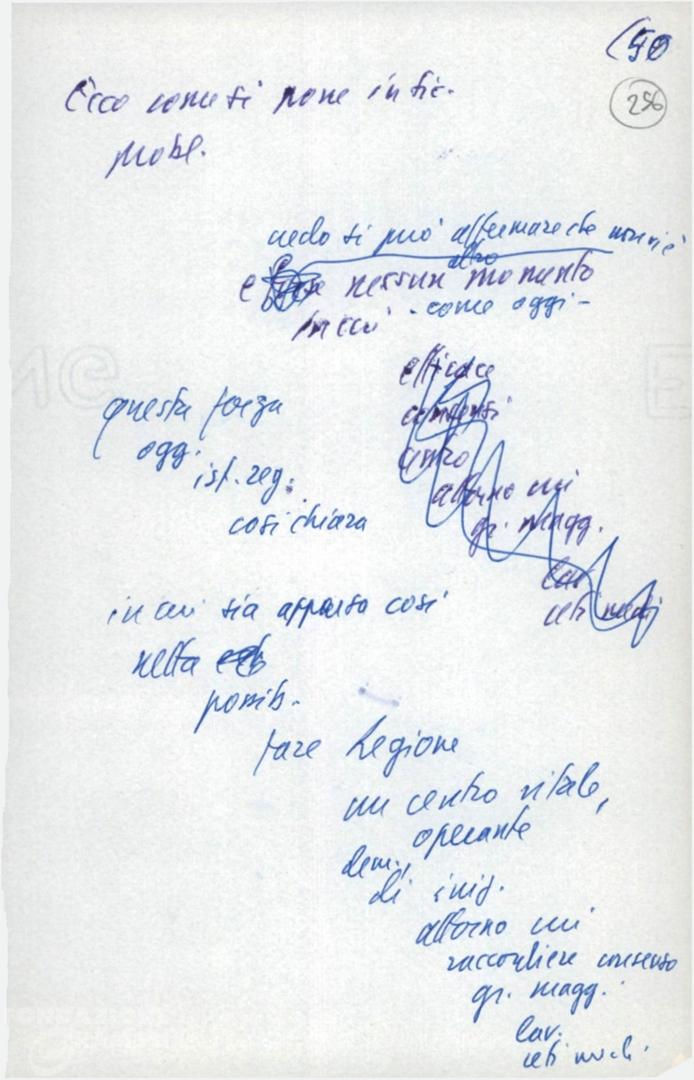 (50
256
Ecco come si pone in Sic.
probl.
credo si può affermare che non vi è
altro
e nessun momento
in cui - come oggi -
efficace
consensi
centro
attorno cui
gr. magg.
lav.
ceti medi
questa forza
oggi
ist. reg.
così chiara
in cui sia apparsa così
netta
possib.
fare Regione
un centro vitale,
operante
dem.,
di iniz.
attorno cui
raccogliere consenso
gr. magg.
lav.
ceti medi.